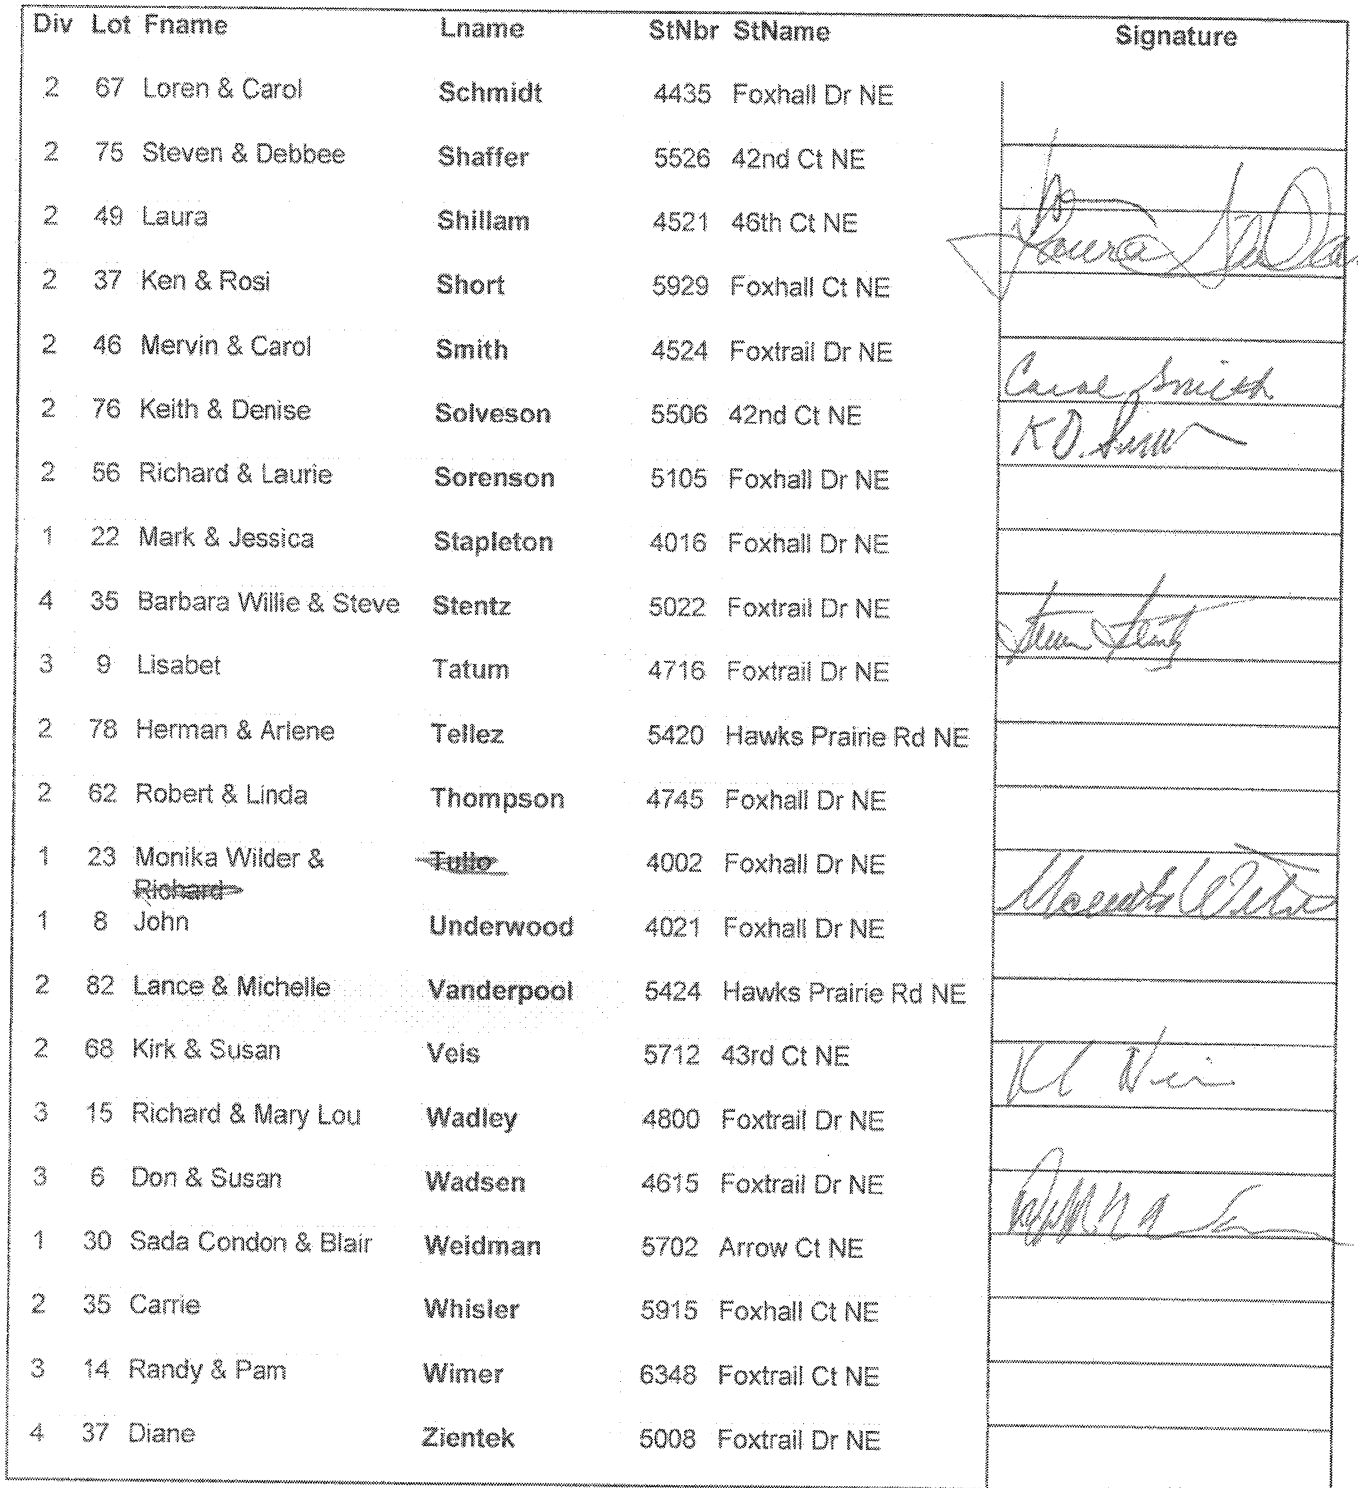 Div Lot Fname Lname StNbr StName Signature
2 67 Loren & Carol Schmidt 4435 Foxhall Dr NE
2 75 Steven & Debbee Shaffer 5526 42nd Ct NE
2 49 Laura Shillam 4521 46th Ct NE Laura
2 37 Ken & Rosi Short 5929 Foxhall Ct NE
2 46 Mervin & Carol Smith 4524 Foxtrail Dr NE Carol Smith
2 76 Keith & Denise Solveson 5506 42nd Ct NE K D.
2 56 Richard & Laurie Sorenson 5105 Foxhall Dr NE
1 22 Mark & Jessica Stapleton 4016 Foxhall Dr NE
4 35 Barbara Willie & Steve Stentz 5022 Foxtrail Dr NE Steve Stentz
3 9 Lisabet Tatum 4716 Foxtrail Dr NE
2 78 Herman & Arlene Tellez 5420 Hawks Prairie Rd NE
2 62 Robert & Linda Thompson 4745 Foxhall Dr NE
1 23 Monika Wilder & Tullo 4002 Foxhall Dr NE
Richard
1 8 John Underwood 4021 Foxhall Dr NE
2 82 Lance & Michelle Vanderpool 5424 Hawks Prairie Rd NE
2 68 Kirk & Susan Veis 5712 43rd Ct NE
3 15 Richard & Mary Lou Wadley 4800 Foxtrail Dr NE
3 6 Don & Susan Wadsen 4615 Foxtrail Dr NE
1 30 Sada Condon & Blair Weidman 5702 Arrow Ct NE
2 35 Carrie Whisler 5915 Foxhall Ct NE
3 14 Randy & Pam Wimer 6348 Foxtrail Ct NE
4 37 Diane Zientek 5008 Foxtrail Dr NE